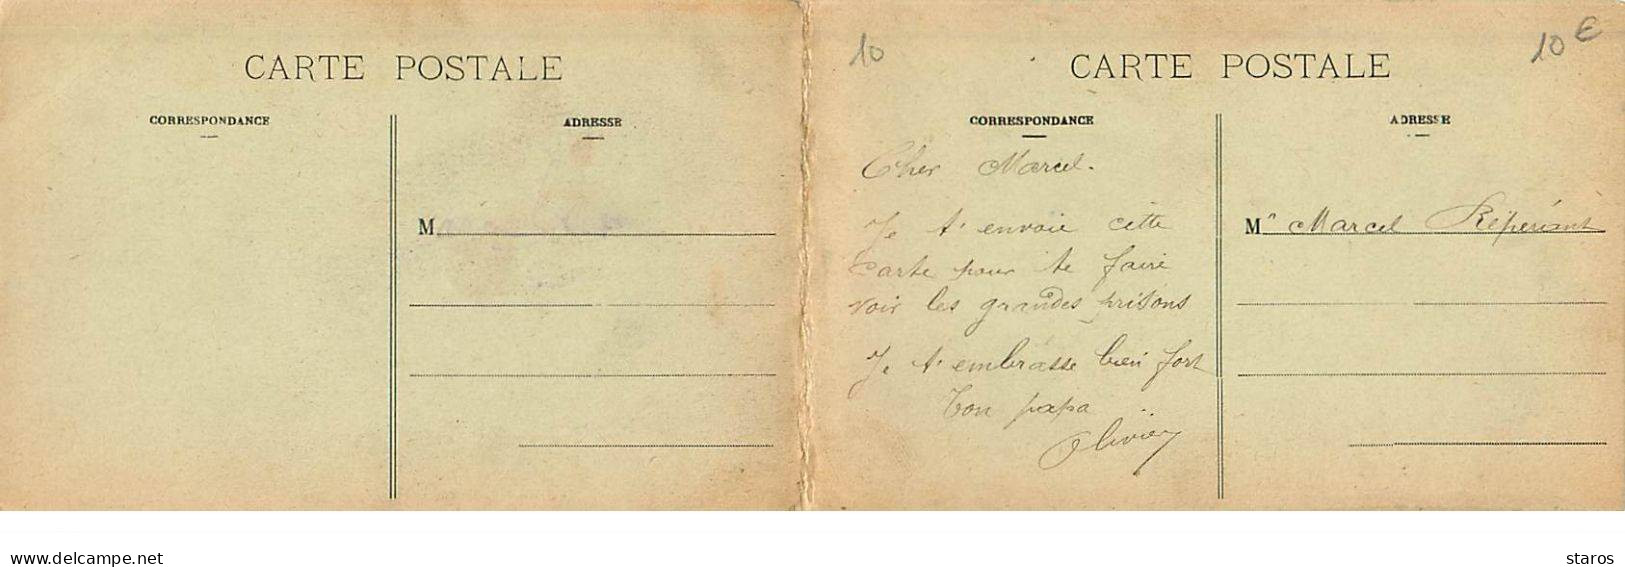 CARTE POSTALE
CORRESPONDANCE
ADRESSE
M
10
10 €
CARTE POSTALE
CORRESPONDANCE
ADRESSE
Cher Marcel.
Je t'envoie cette
carte pour te faire
voir les grandes prisons
Je t'embrasse bien fort
Ton papa
Olivier
Mr Marcel Répériant
www.delcampe.net
staros